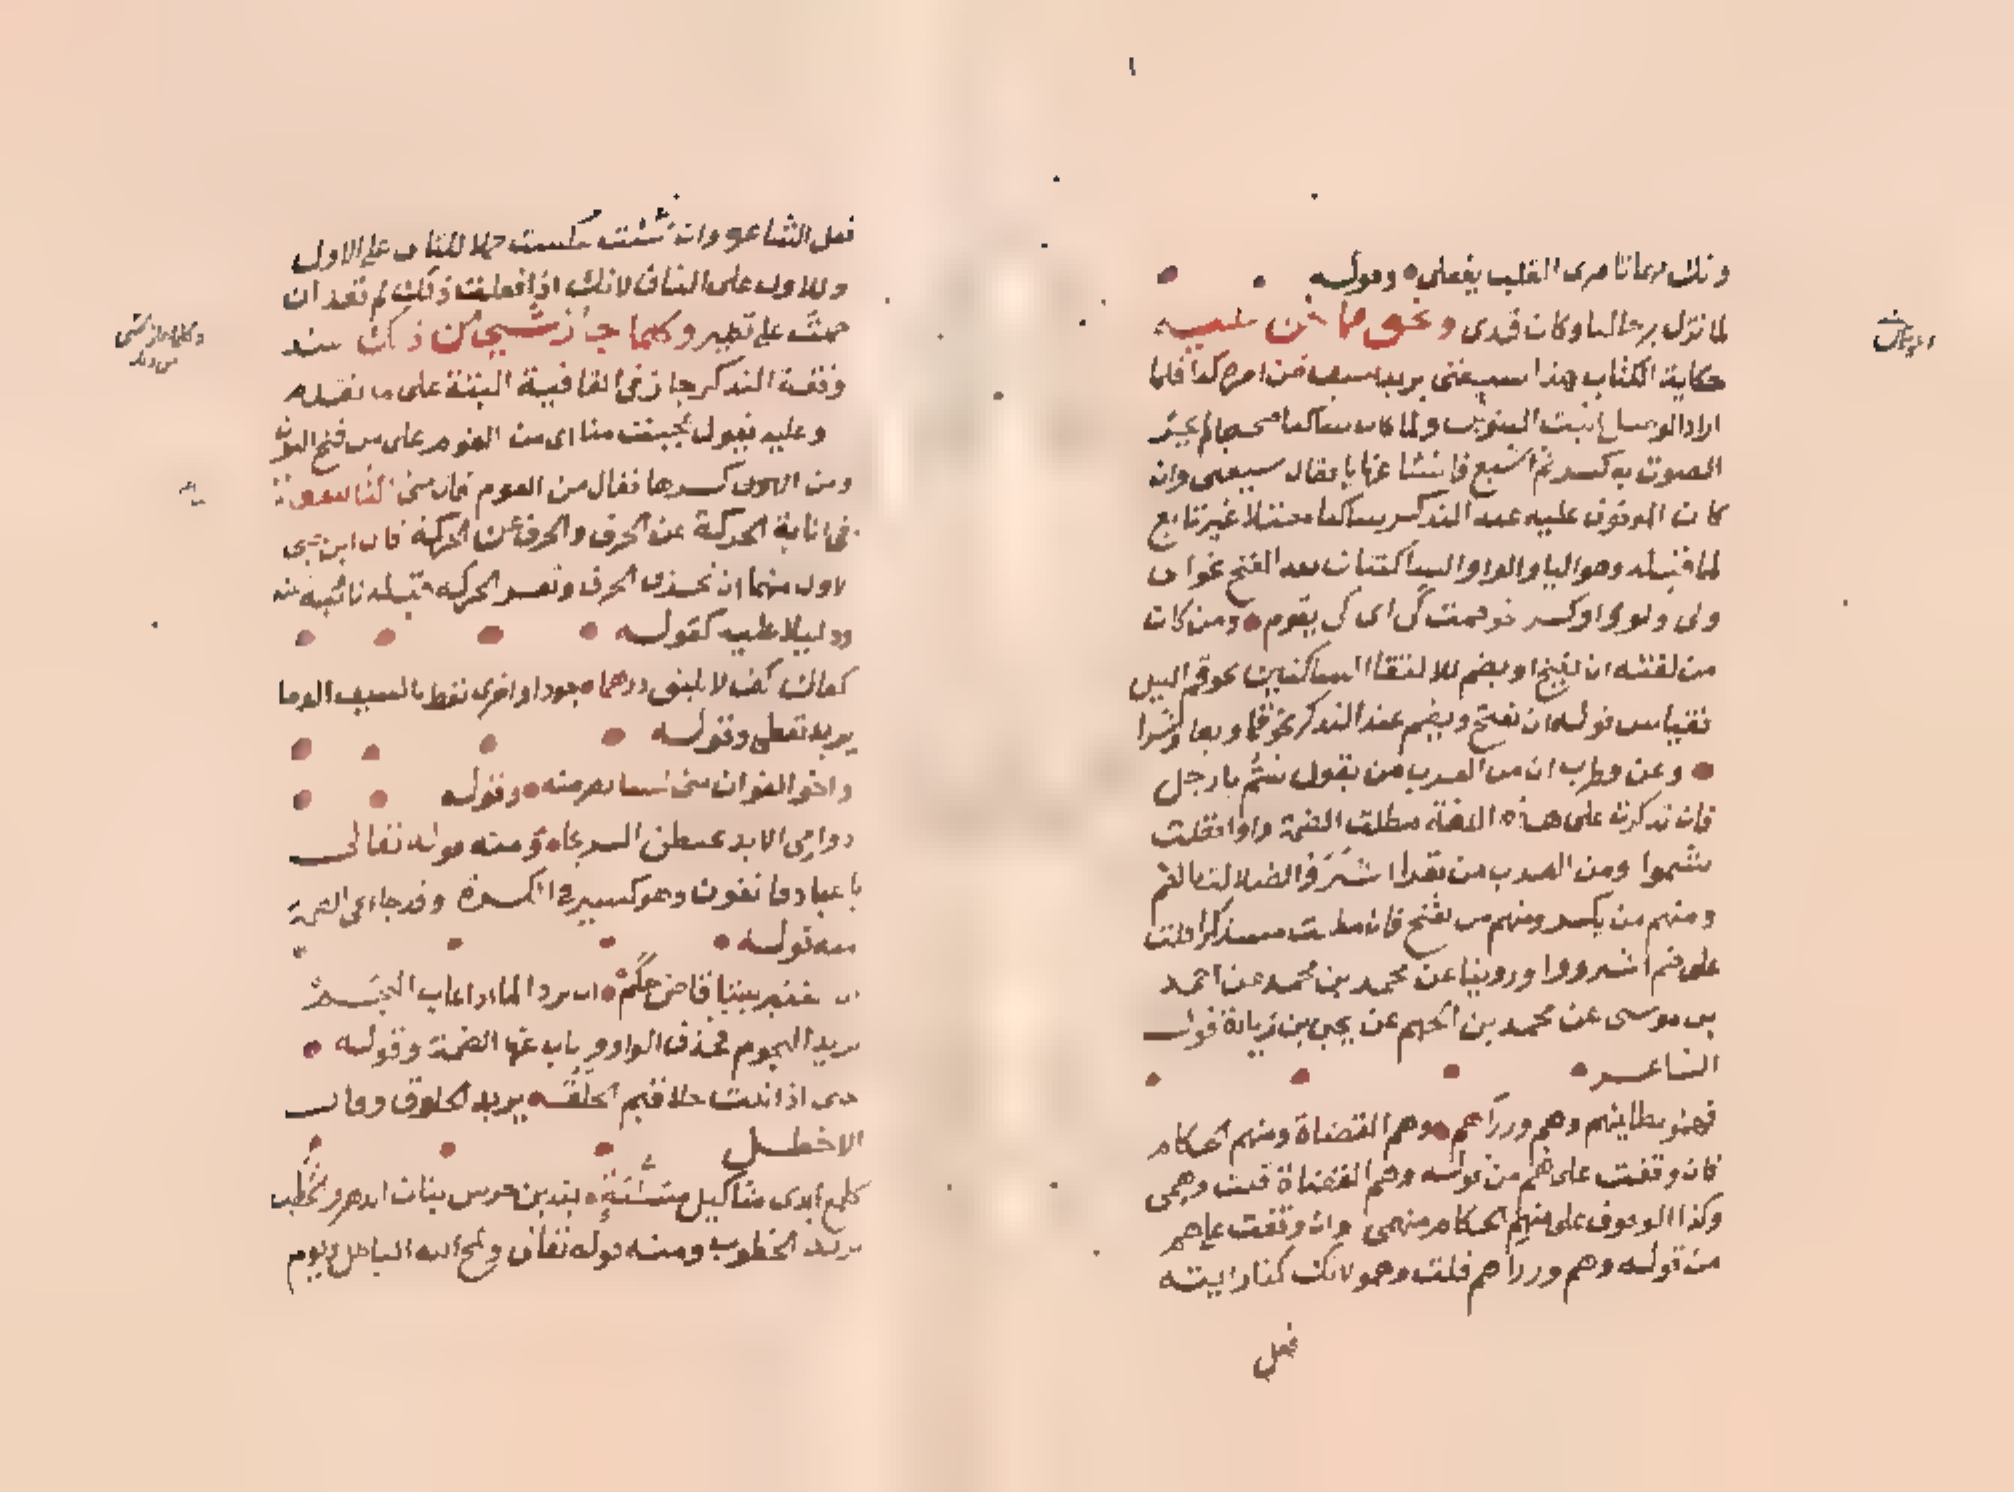 القلب يفعلى وقوله
لما تزل برحالنا وكان قدى ونحو ما نحن عليه
حكاية الكتاب هذا سيفنى يريد سيف من امره كذا فلما
اراد الوصل اثبت التنوين ولما كان ساكنا صحيحا لم يجر
الصوت به كسر ثم اشبع فانشا عنها يا فقال سيفنى وان
كان الموقوف عليه عند التذكر ساكنا معتلا غير تابع
لما قبله وهو اليا والواو الساكنتان بعد الفتح نحو اى
وكى ولو واو كسر نحو قمت كى اى كى يقوم ومن كان
من لغته ان يفتح او يضم لالتقا الساكنين نحو قم الليل
فقياس قوله ان يفتح ويضم عند التذكر نحو قما وبعا وسرا
وعن قطرب ان من العرب من يقول شم يا رجل
فان تذكرت على هذه اللغة مطلت الضمة واوا فقلت
شموا ومن العرب من يقرا اشتروا الضلالة بالضم
ومنهم من يكسر ومنهم من يفتح فان مطلت متذكرا قلت
على ضم اشترووا وروينا عن محمد بن محمد عن احمد
بن موسى عن محمد بن الجهم عن يحيى بن زيادة قول
الشاعر
فهمو بطانتهم وهم وزراهم وهم القضاة ومنهم الحكام
فان وقفت على هم من قوله وهم القضاة قلت وهمى
وكذا الوقوف على منهم الحكام منهمى وان وقفت على هم
من قوله وهم وزراهم قلت وهمو لانك كذا رايته
فعل
فعل الشاعر وان شئت عكست حملا للثانى على الاول
وللاول على الثانى لانك اذا فعلت ذلك لم تعد ان
حملت على نظير وكلما جاز شئ من ذلك عند
وقفة التذكر جاز فى القافية البتة على ما تقدم
وعليه تقول عجبت منا اى من القوم على من فتح النون
ومن كسرها فقال من القوم قال منى
فى انابة الحركة عن الحرف والحرف عن الحركة قال ابن جنى
الاول منهما ان تحذف الحرف وتقر الحركة قبله نائبة عنه
ودليلا عليه كقوله
كفاك كف لا تليق درهما جودا واخرى تعط بالسيف الدما
يريد تعطى وقوله
واخو الغوان متى يشا يصرمنه وقوله
دوامى الايد يخبطن السريحا ومنه قوله تعالى
يا عباد فاتقون وهو كثير فى الكسرة وقد جاء فى الضمة
منه قوله
ان بيننا قاض حكم ان ترد الما اذا غاب النجم
يريد النجوم فحذف الواو وناب عنها الضمة وقوله
حتى اذا بلت حلاقيم الحلق يريد الحلوق وقال
الاخطل
كلمع ايدى مثاكيل مسلبة يندبن ضرس بنات الدهر والخطب
يريد الخطوب ومنه قوله تعالى ويمح الله الباطل ويوم